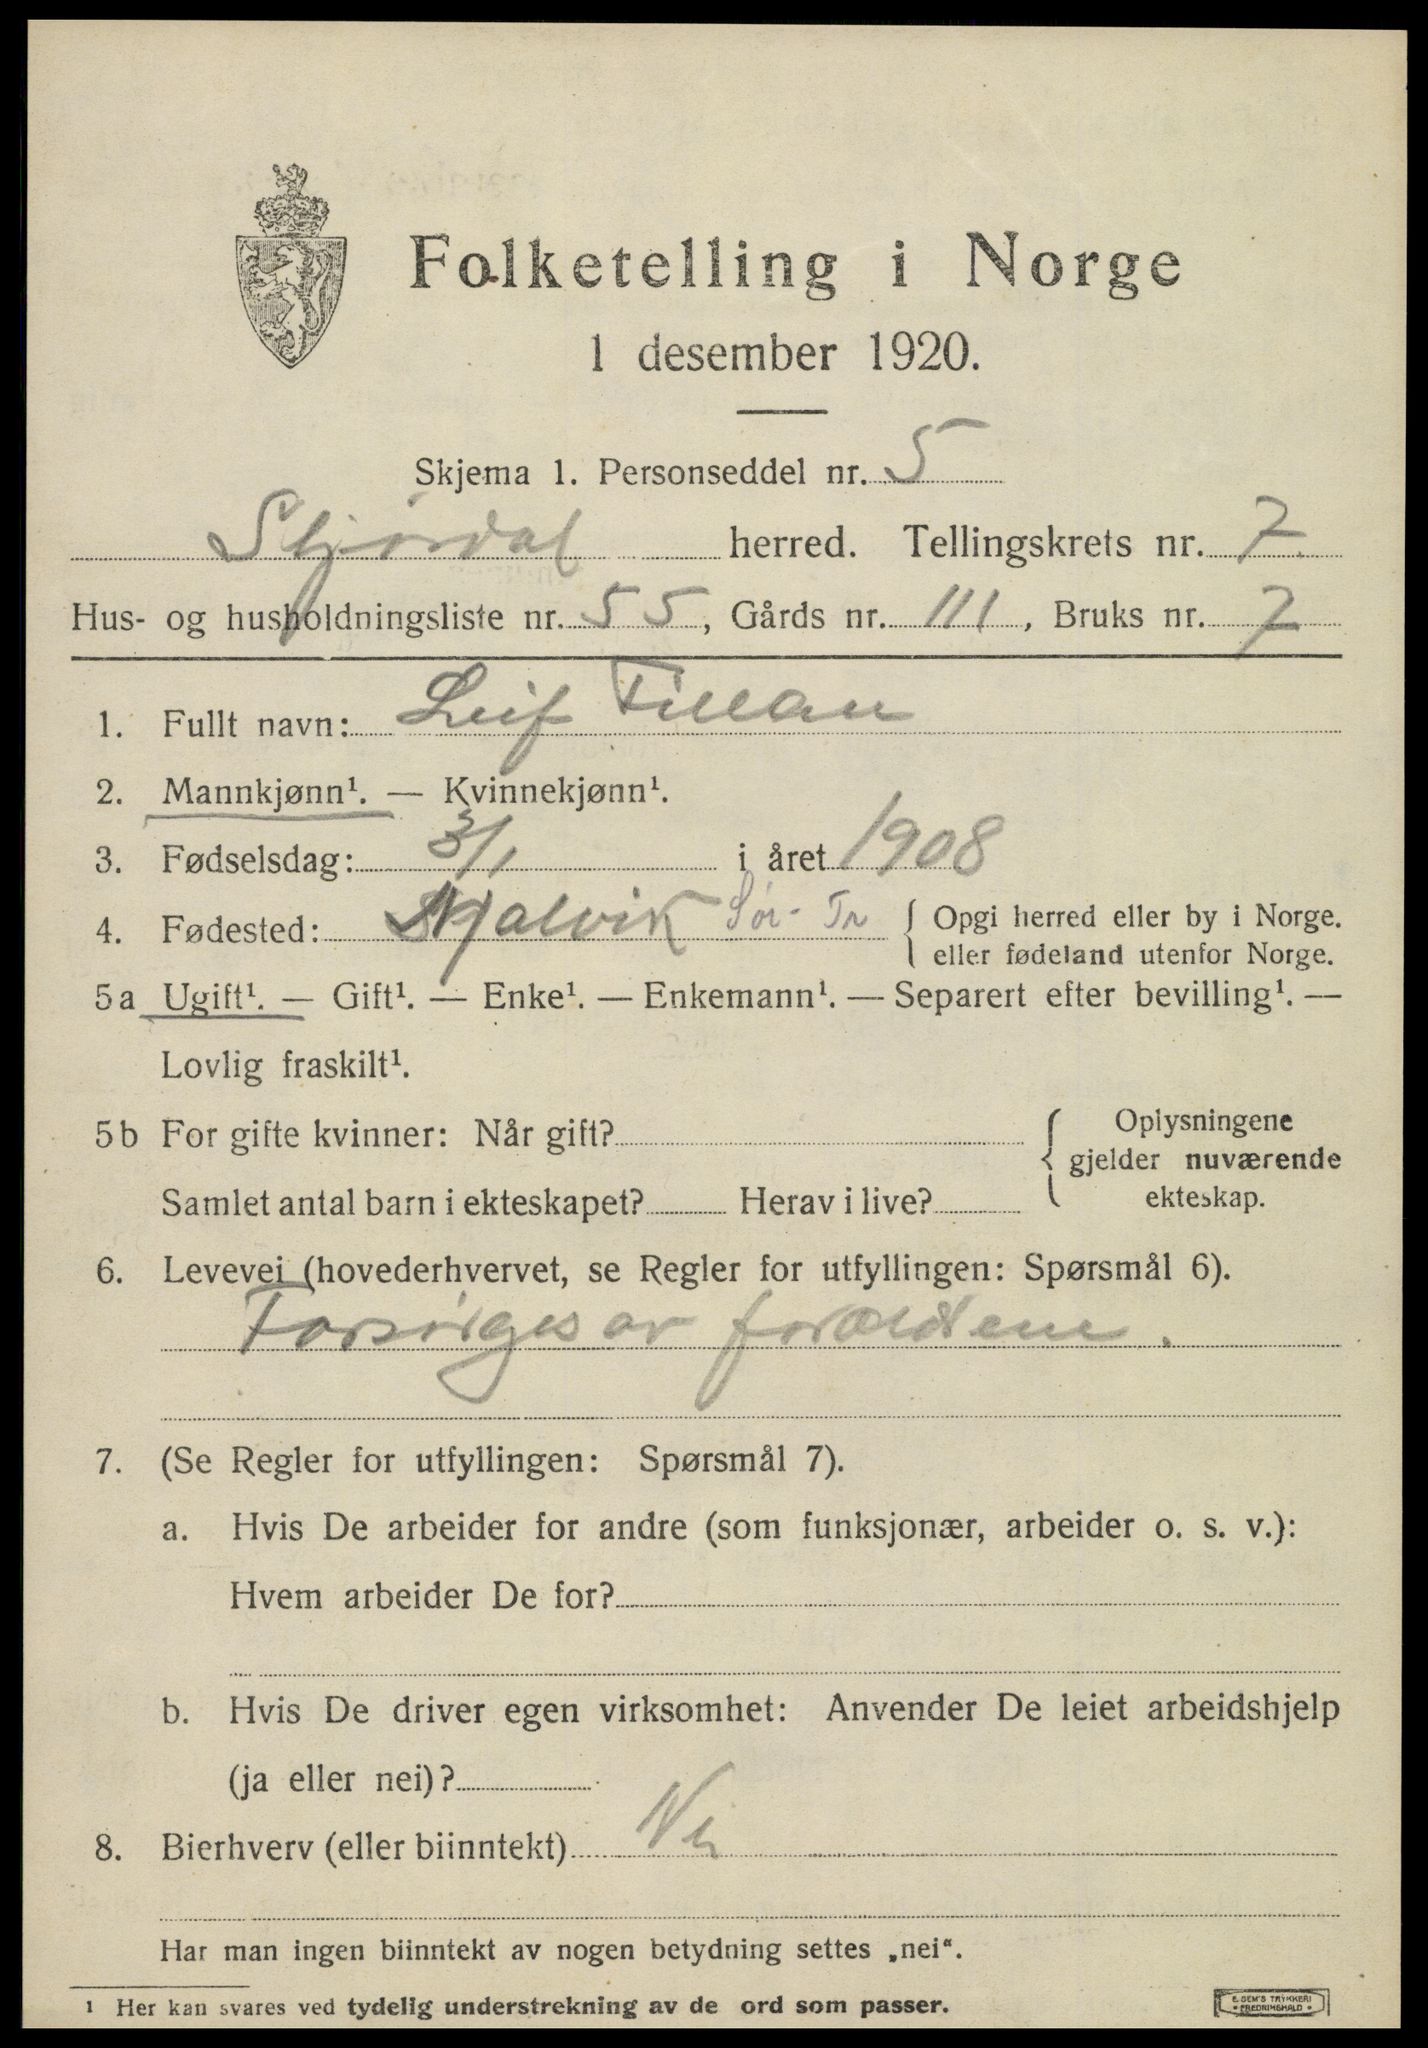 Folketelling i Norge
1 desember 1920.
Skjema 1. Personseddel nr. 5
Stjørdal herred. Tellingskrets nr. 7.
Hus- og husholdningsliste nr. 55, Gårds nr. 111, Bruks nr. 7
1. Fullt navn: Leif Fillan
2. Mannkjønn¹. — Kvinnekjønn¹.
3. Fødselsdag: 3/1 i året 1908
4. Fødested: Malvik Sør-Tr { Opgi herred eller by i Norge.
eller fødeland utenfor Norge.
5a Ugift¹. — Gift¹. — Enke¹. — Enkemann¹. — Separert efter bevilling¹. —
Lovlig fraskilt¹.
5b For gifte kvinner: Når gift? { Oplysningene
gjelder nuværende
Samlet antal barn i ekteskapet? Herav i live? ekteskap.
6. Levevei (hovederhvervet, se Regler for utfyllingen: Spørsmål 6).
Forsørges av forældrene.
7. (Se Regler for utfyllingen: Spørsmål 7).
a. Hvis De arbeider for andre (som funksjonær, arbeider o. s. v.):
Hvem arbeider De for?
b. Hvis De driver egen virksomhet: Anvender De leiet arbeidshjelp
(ja eller nei)?
8. Bierhverv (eller biinntekt) Nei
Har man ingen biinntekt av nogen betydning settes „nei“.
¹ Her kan svares ved tydelig understrekning av de ord som passer.
E. SEM'S TRYKKERI
• FREDRIKSHALD •